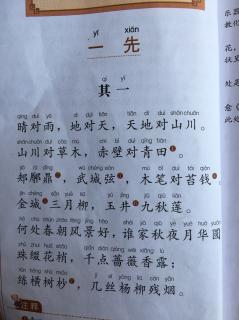 yī xiān
一 先
qí yī
其一
qíng duì yǔ dì duì tiān tiān dì duì shān chuān
晴对雨，地对天，天地对山川。
shān chuān duì cǎo mù chì bì duì qīng tián
山川对草木，赤壁对青田①。
jiá rǔ dǐng wǔ chéng xián mù bǐ duì tái qián
郏鄏鼎②，武城弦③，木笔对苔钱④。
jīn chéng sān yuè liǔ yù jǐng jiǔ qiū lián
金城⑤三月柳，玉井⑥九秋莲。
hé chù chūn zhāo fēng jǐng hǎo shuí jiā qiū yè yuè huá yuán
何处春朝风景好，谁家秋夜月华圆
zhū zhuì huā shāo qiān diǎn qiáng wēi xiāng lù
珠缀花梢，千点蔷薇香露；
liàn héng shù miǎo jǐ sī yáng liǔ cán yān
练横树杪⑦，几丝杨柳残烟。
注释
乐器
教化
处是